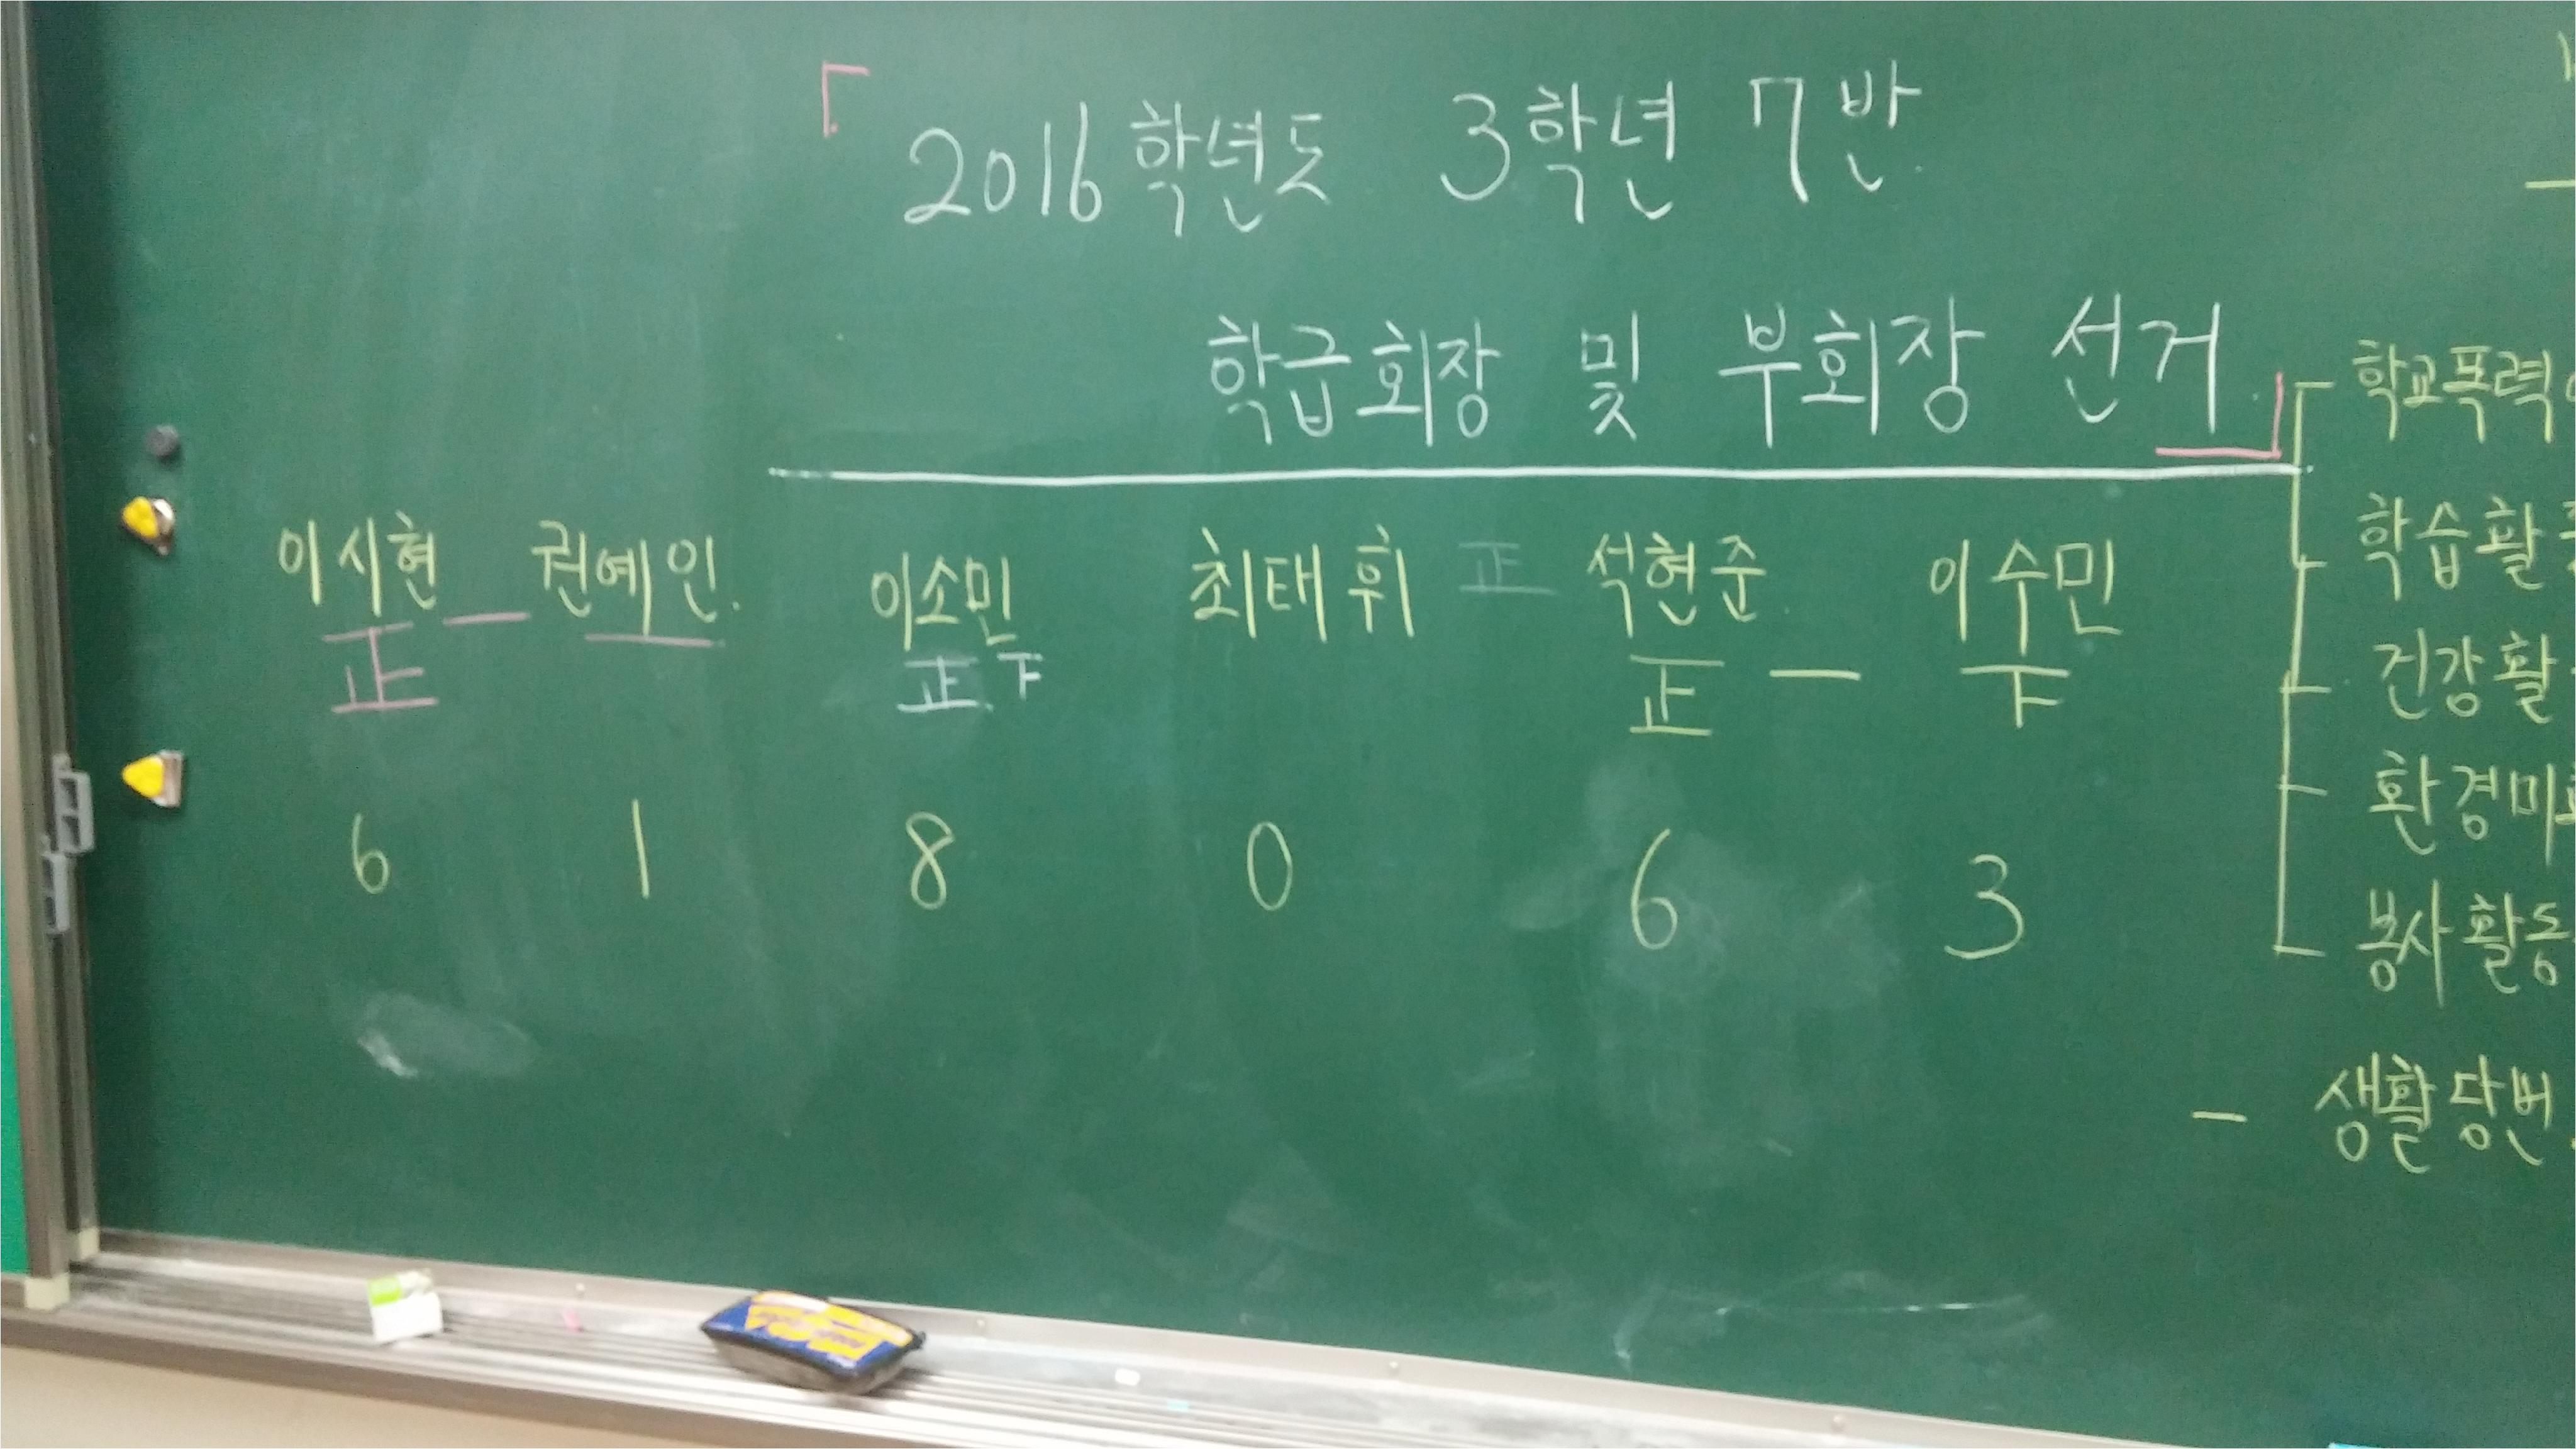 「2016학년도 3학년 7반
학급회장 및 부회장 선거」
이시현 권예인. 이소민 최태휘 正 석현준. 이수민
正 一 一 正 下 正 一 下
6 1 8 0 6 3
학교폭력
학습활
건강활
환경미
봉사활동
- 생활당번